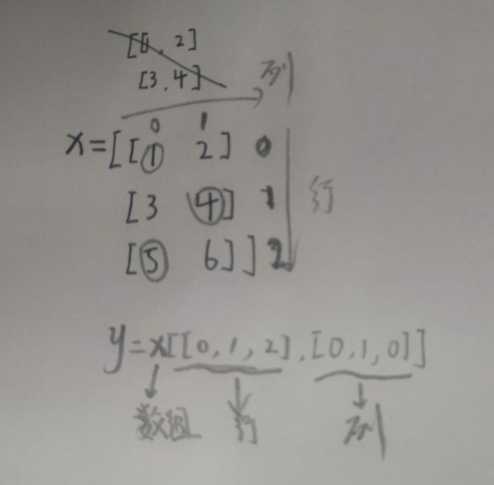 [1, 2]
[3,4] 列
0 1
x=[[1 2] 0
[3 4] 1 行
[5 6]] 2
y=x[[0,1,2],[0,1,0]]
数组 行 列